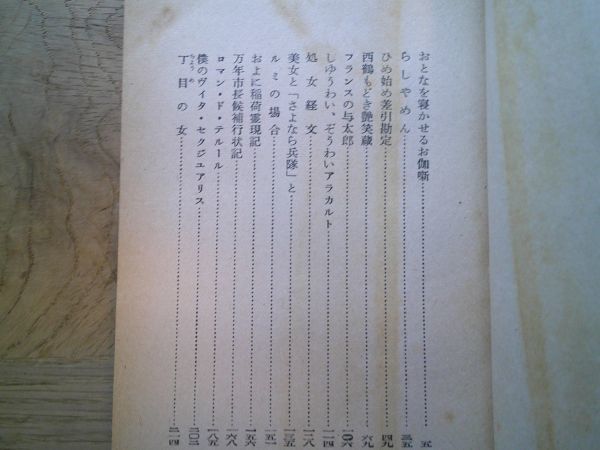 おとなを寝かせるお伽噺……五
らしやめん……三五
ひめ始め差引勘定……四九
西鶴もどき艶笑蔵……六九
フランスの与太郎……一〇六
しゆうわい、ぞうわいアラカルト……一一四
処女経文……一二八
美女と「さよなら兵隊」と……一三五
ルミの場合……一五一
およに稲荷霊現記……一五六
万年市長候補行状記……一六八
ロマン・ド・テルール……一八五
僕のヴイタ・セクジユアリス……二〇三
丁目の女……二一四
ちようめ